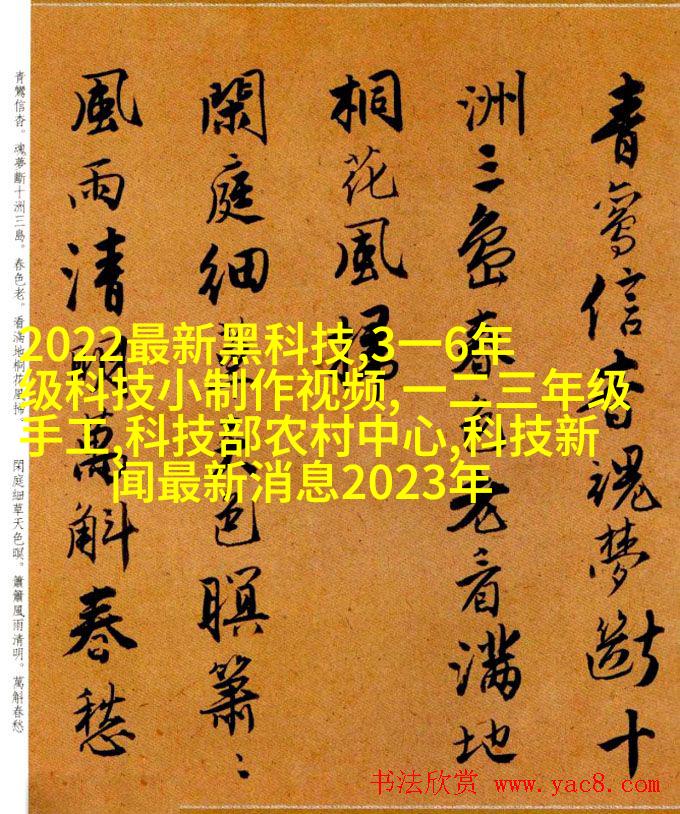 青鸞信杳魂夢斷十
洲三島春色老看滿地
桐花風掃
閑庭細草天色暝簫〻
風雨清明萬斛春愁
青鸞信杳。魂夢斷十洲三島。春色老。看滿地桐花風掃
閑庭細草天色暝。簫簫風雨清明。萬斛春愁
2022最新黑科技,3一6年
级科技小制作视频,一二三年级
手工,科技部农村中心,科技新
闻最新消息2023年
书法欣赏 www.yac8.com